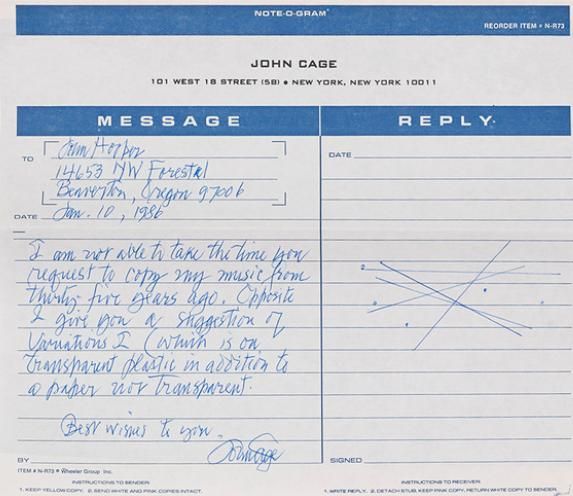 NOTE-O-GRAM®
REORDER ITEM # N-R73
JOHN CAGE
101 WEST 18 STREET (5B) • NEW YORK, NEW YORK 10011
MESSAGE
TO John Hopper
14653 NW Forestel
Beaverton, Oregon 97006
DATE Jan. 10, 1986
I am not able to take the time you
request to copy my music from
thirty five years ago. Opposite
I give you a suggestion of
Variations I (which is on
transparent plastic in addition to
a paper not transparent.
Best wishes to you.
BY John Cage
ITEM # N-R73 © Wheeler Group Inc.
INSTRUCTIONS TO SENDER:
1. KEEP YELLOW COPY. 2. SEND WHITE AND PINK COPIES INTACT.
REPLY
DATE
SIGNED
INSTRUCTIONS TO RECEIVER:
1. WRITE REPLY. 2. DETACH STUB, KEEP PINK COPY, RETURN WHITE COPY TO SENDER.